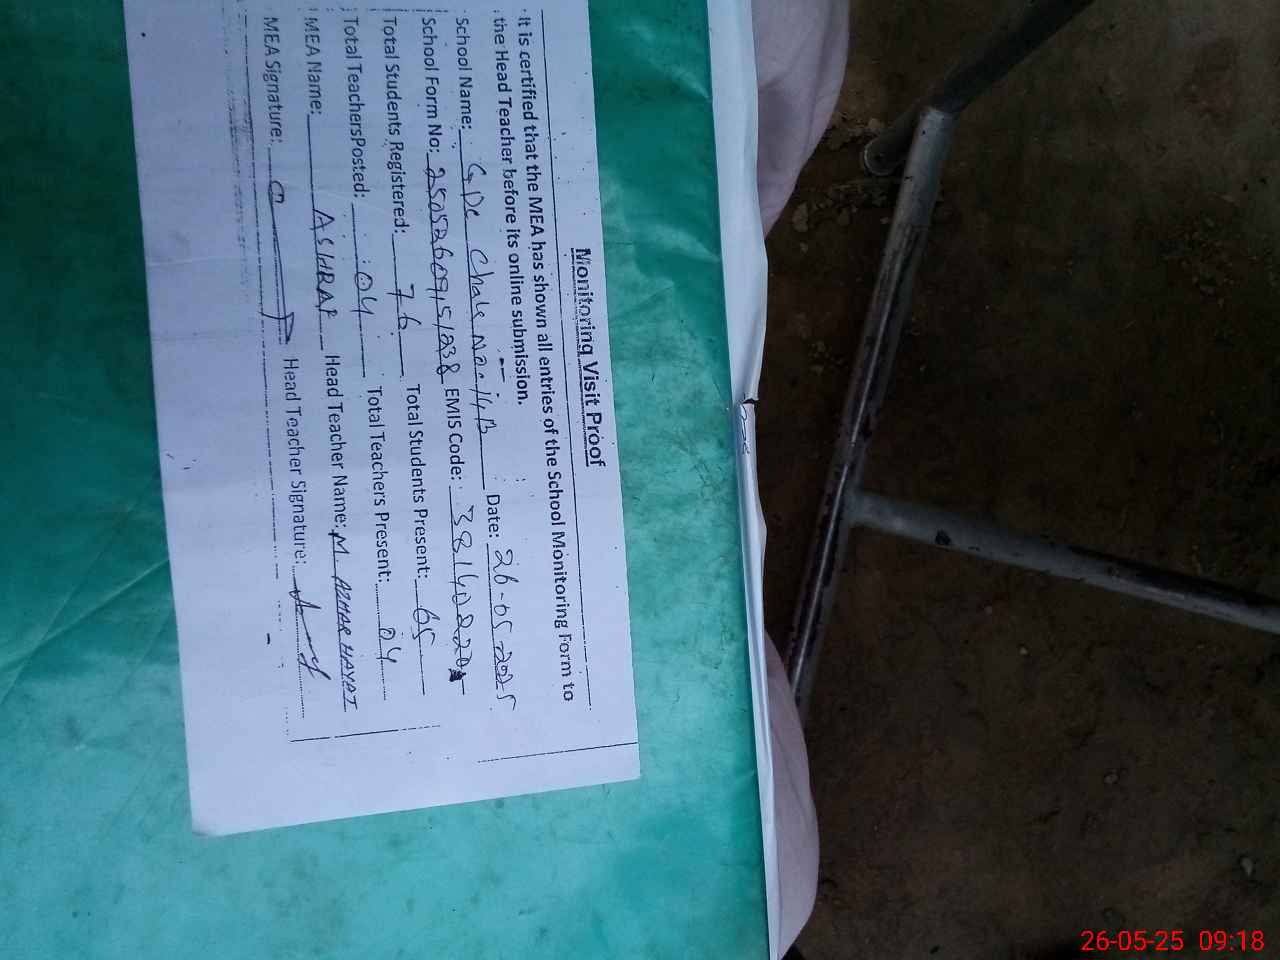 Monitoring Visit Proof
It is certified that the MEA has shown all entries of the School Monitoring Form to
the Head Teacher before its online submission.
School Name: GPS Chak No. 14B Date: 26-05-2025
School Form No: EMIS Code:
Total Students Registered: 76 Total Students Present: 65
Total TeachersPosted: 04 Total Teachers Present: 04
MEA Name: ASHRAF Head Teacher Name: M. AZHAR HAYAT
MEA Signature: Head Teacher Signature:
26-05-25 09:18